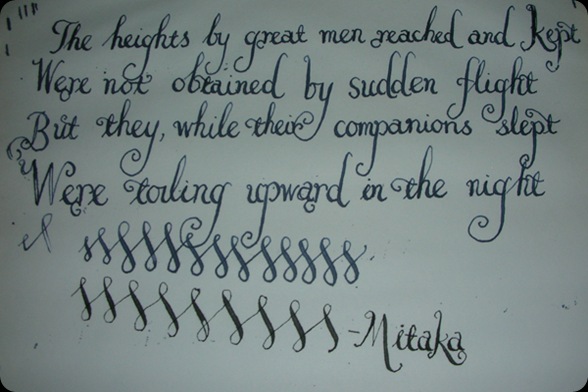 The heights by great men reached and kept
Were not obtained by sudden flight
But they, while their companions slept
Were toiling upward in the night
-Mitaka